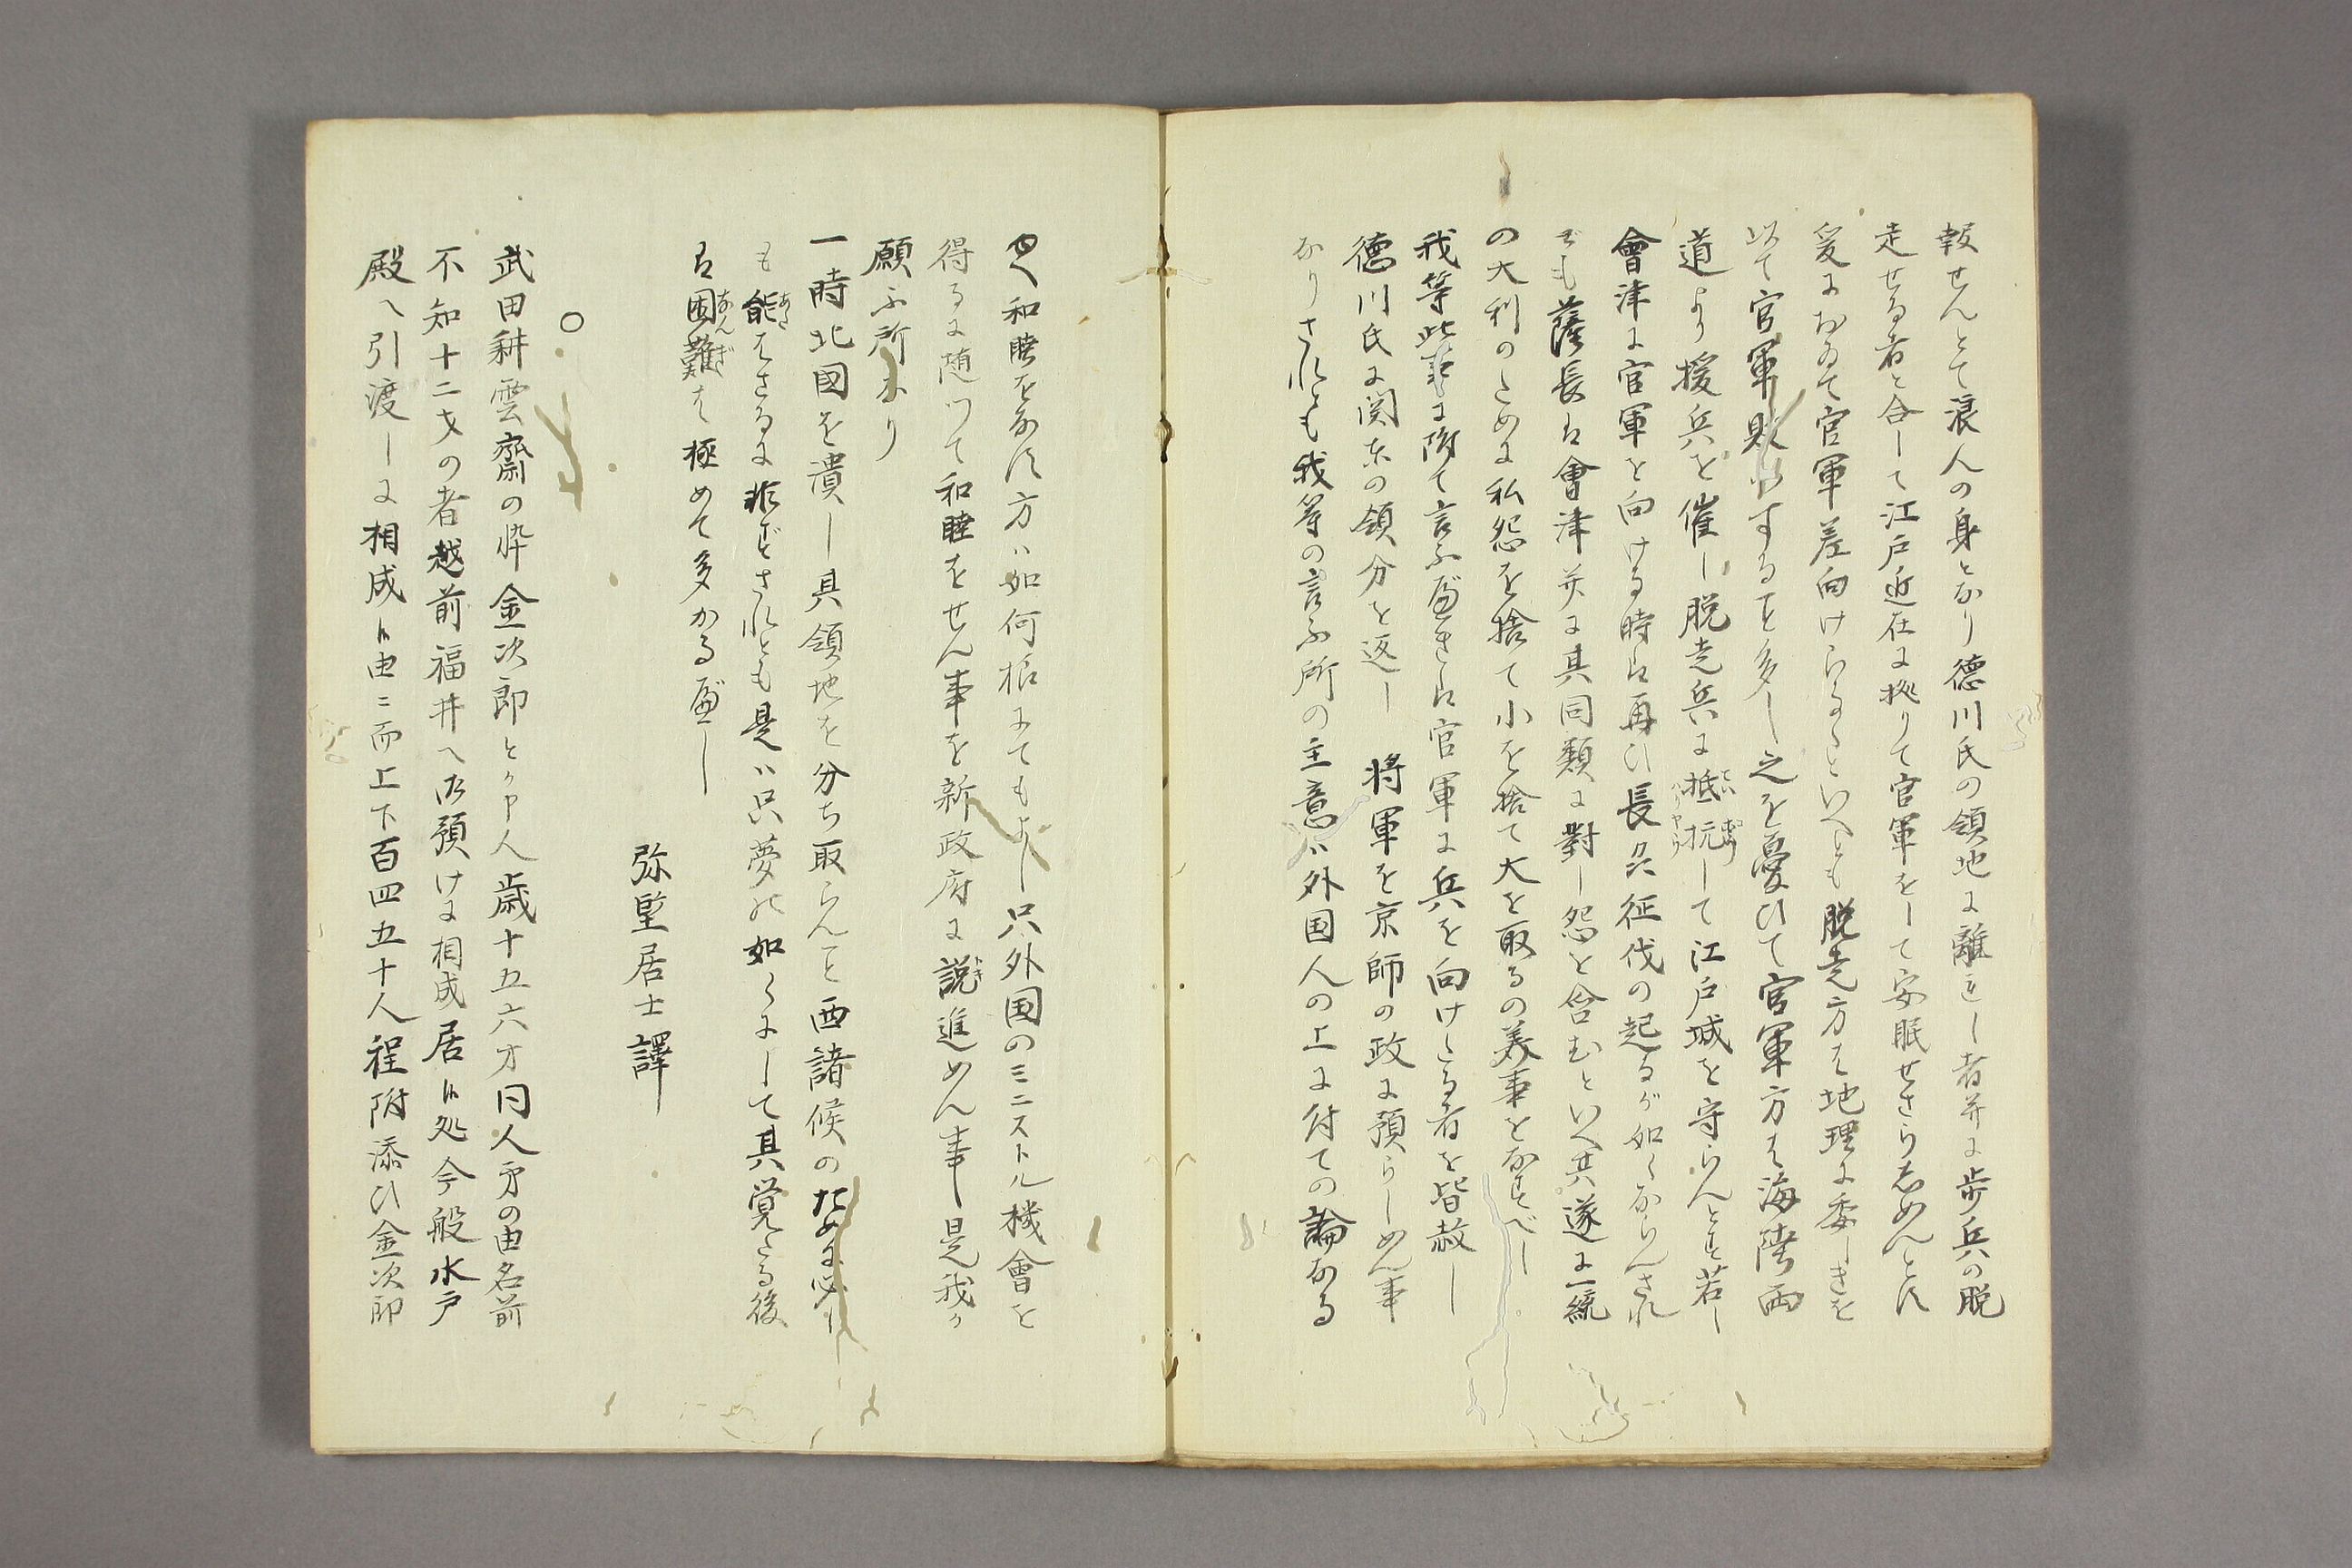 報せんとて浪人の身となり徳川氏の領地に離れし者并に歩兵の脱
走せる者と合して江戸近在に拠りて官軍をして安眠せさらしめんとす
爰におゐて官軍差向けらるゝといへとも脱走方は地理に委しきを
以て官軍敗するを多し之を憂ひて官軍方は海陸両
道より援兵を催し脱走兵に抵抗して江戸城を守らんとす若し
會津に官軍を向ける時は再ひ長州征伐の起るが如くならんされ
ども薩長は會津并に其同類に對し怨を含むといへ共遂に一統
の大利のために私怨を捨て小を捨て大を取るの美事をなすべし
我等此事に附て言ふべきは官軍に兵を向けたる者を皆赦し
徳川氏に関東の領分を返し 将軍を京師の政に預らしめん事
なりされとも我等の言ふ所の主意ハ外国人の上に付ての論なる
故へ和睦をなす方ハ如何様にてもよし只外国のミニストル機會を
得るに随つて和睦をせん事を新政府に説進めん事是我か
願ふ所なり
一時北國を潰し其領地を分ち取らんと西諸候のために必し
も能はさるに非すされとも是ハ只夢の如くにして其覚たる後
は困難は極めて多かるべし
弥堅居士譯
○
武田耕雲齋の忰金次郎とか申人歳十五六才同人弟の由名前
不知十二才の者越前福井へ御預けに相成居候処今般水戸
殿へ引渡しに相成候由ニ而上下百四五十人程附添ひ金次郎